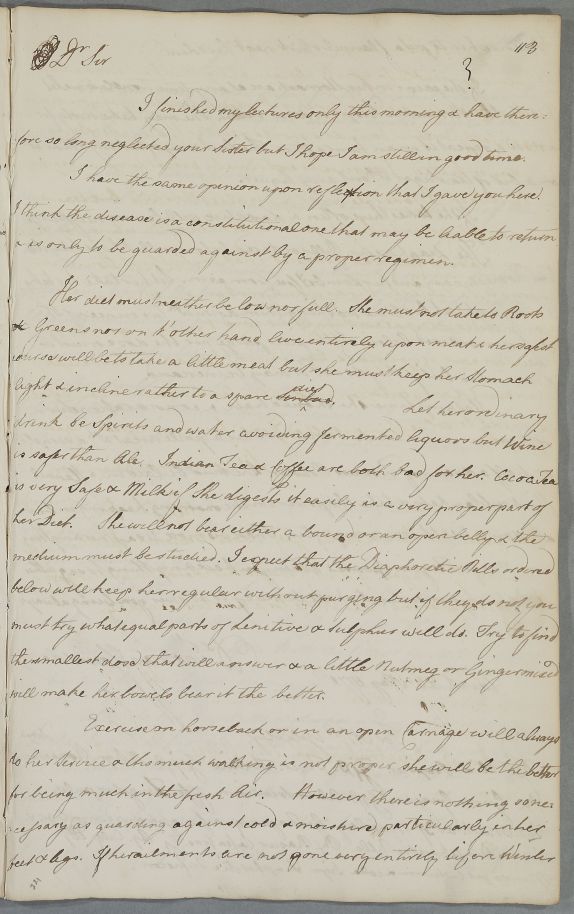 118
Dr Sir
3
I finished my lectures only this morning & have there=
fore so long neglected your Sister but I hope I am still in good time.
I have the same opinion upon reflection that I gave you here.
I think the disease is a constitutional one that may be liable to return
& is only to be guarded against by a proper regimen.
Her diet must neither be low nor full. She must not take to Roots
& Greens nor on t'other hand live entirely upon meat & her safest
course will be to take a little meat but she must keep her Stomach
light & incline rather to a spare diet.
Let her ordinary
drink be Spirits and water avoiding fermented liquors but Wine
is safer than Ale. Indian Tea & Coffee are both bad for her. Cocoa Tea
is very Safe & Milk if She digests it easily is a very proper part of
her Diet. She will not bear either a bound or an open belly & the
medium must be studied. I expect that the Diaphoretic Pills ordered
below will keep her regular without purging but if they do not you
must try what equal parts of Lenitive & Sulphur will do. Try to find
the smallest dose that will answer & a little Nutmeg or Ginger mixed
will make her bowels bear it the better.
Exercise on horseback or in an open Carriage will always
do her Service & tho much walking is not proper she will be the better
for being much in the fresh Air. However there is nothing so ne=
cessary as guarding against cold & moisture particularly in her
feet & legs. If her ailments are not gone very entirely before Winter